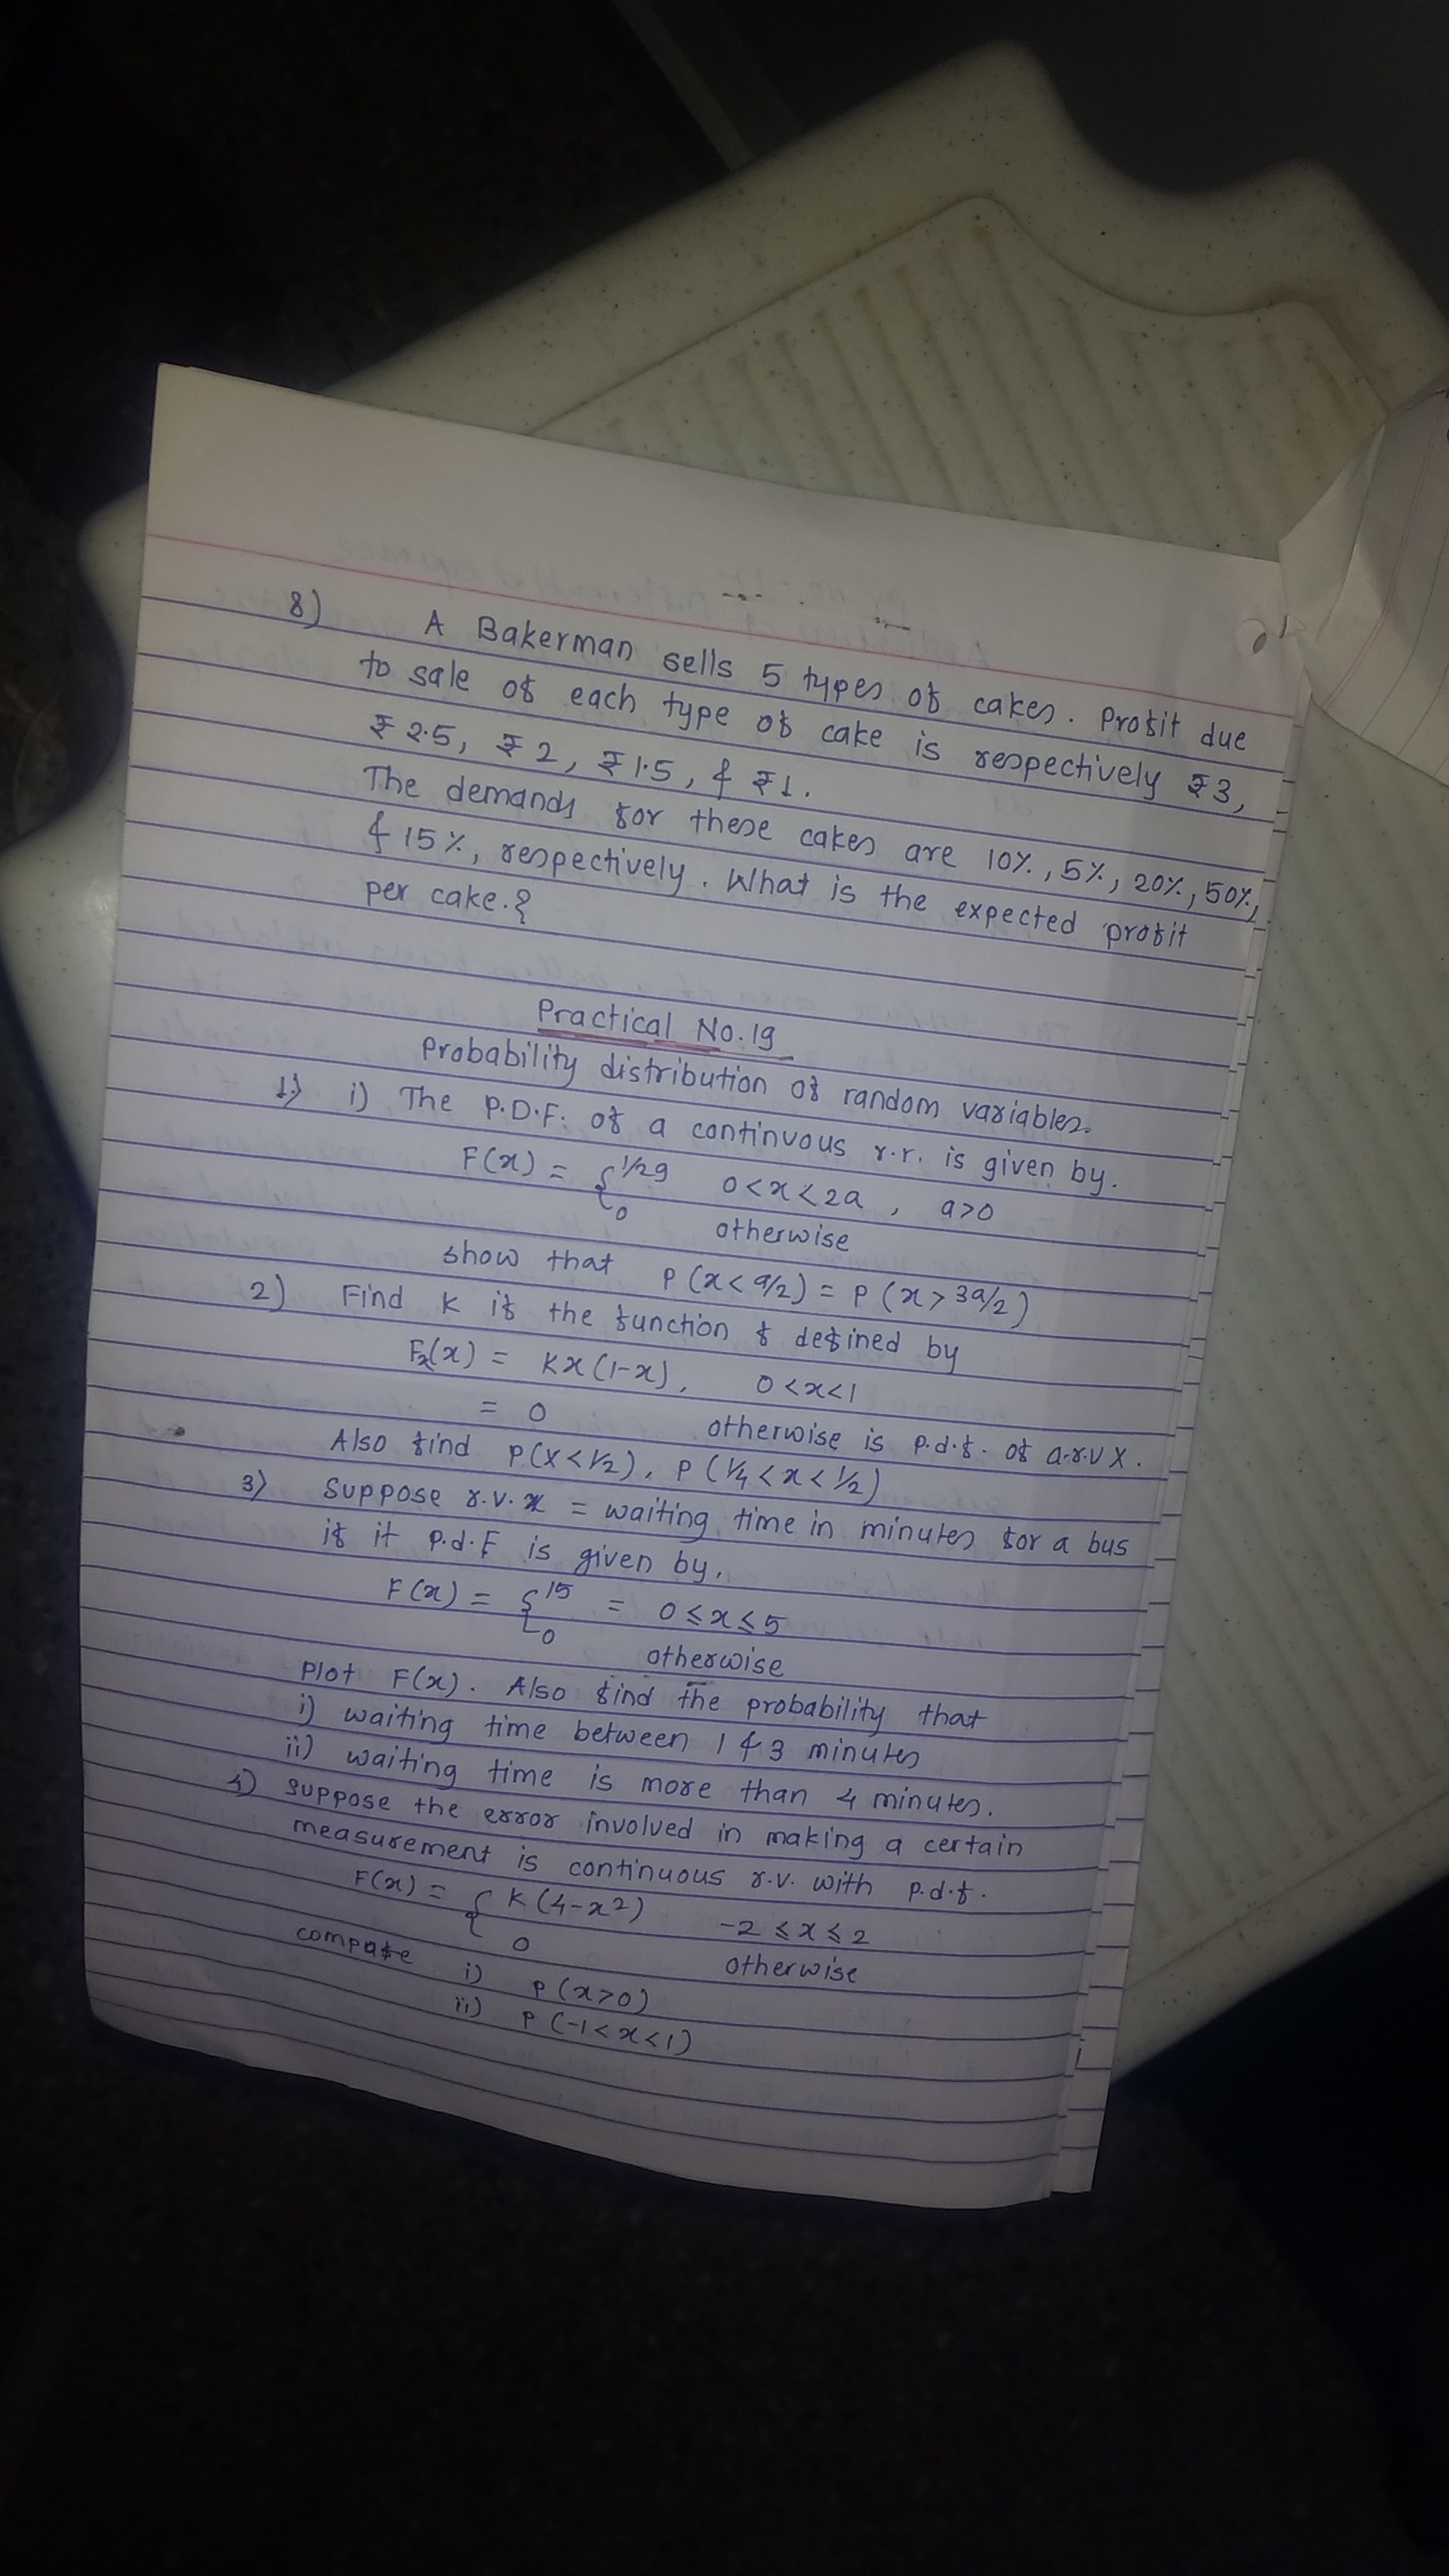 8) A Bakerman sells 5 types of cakes. Profit due
to sale of each type of cake is respectively ₹3,
₹2.5, ₹2, ₹1.5, & ₹1.
The demands for these cakes are 10%, 5%, 20%, 50%,
& 15%, respectively. What is the expected profit
per cake.?
Practical No. 19
Probability distribution of random variables.
1) i) The P.D.F. of a continuous r.r. is given by.
F(x) = { 1/2g 0<x<2a, a>0
0 otherwise
show that P(x<a/2) = P(x>3a/2)
2) Find K if the function f defined by
Fx(x) = Kx(1-x), 0<x<1
= 0 otherwise is p.d.f. of a.r.v X.
Also find P(X<1/2), P(1/4<x<1/2)
3) Suppose r.v. x = waiting time in minutes for a bus
if it p.d.F is given by.
F(x) = { 15 = 0≤x≤5
0 otherwise
Plot F(x). Also find the probability that
i) waiting time between 1 & 3 minutes
ii) waiting time is more than 4 minutes.
4) Suppose the error involved in making a certain
measurement is continuous r.v. with p.d.f.
F(x) = { K(4-x²) -2≤x≤2
0 otherwise
compate i) P(x>0)
ii) P(-1<x<1)